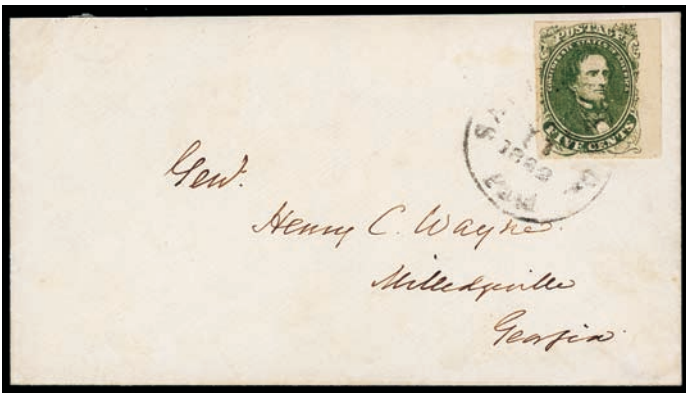 POSTAGE
CONFEDERATE STATES OF AMERICA
FIVE CENTS
1862
Genl.
Henry C. Wayne.
Milledgeville
Georgia.